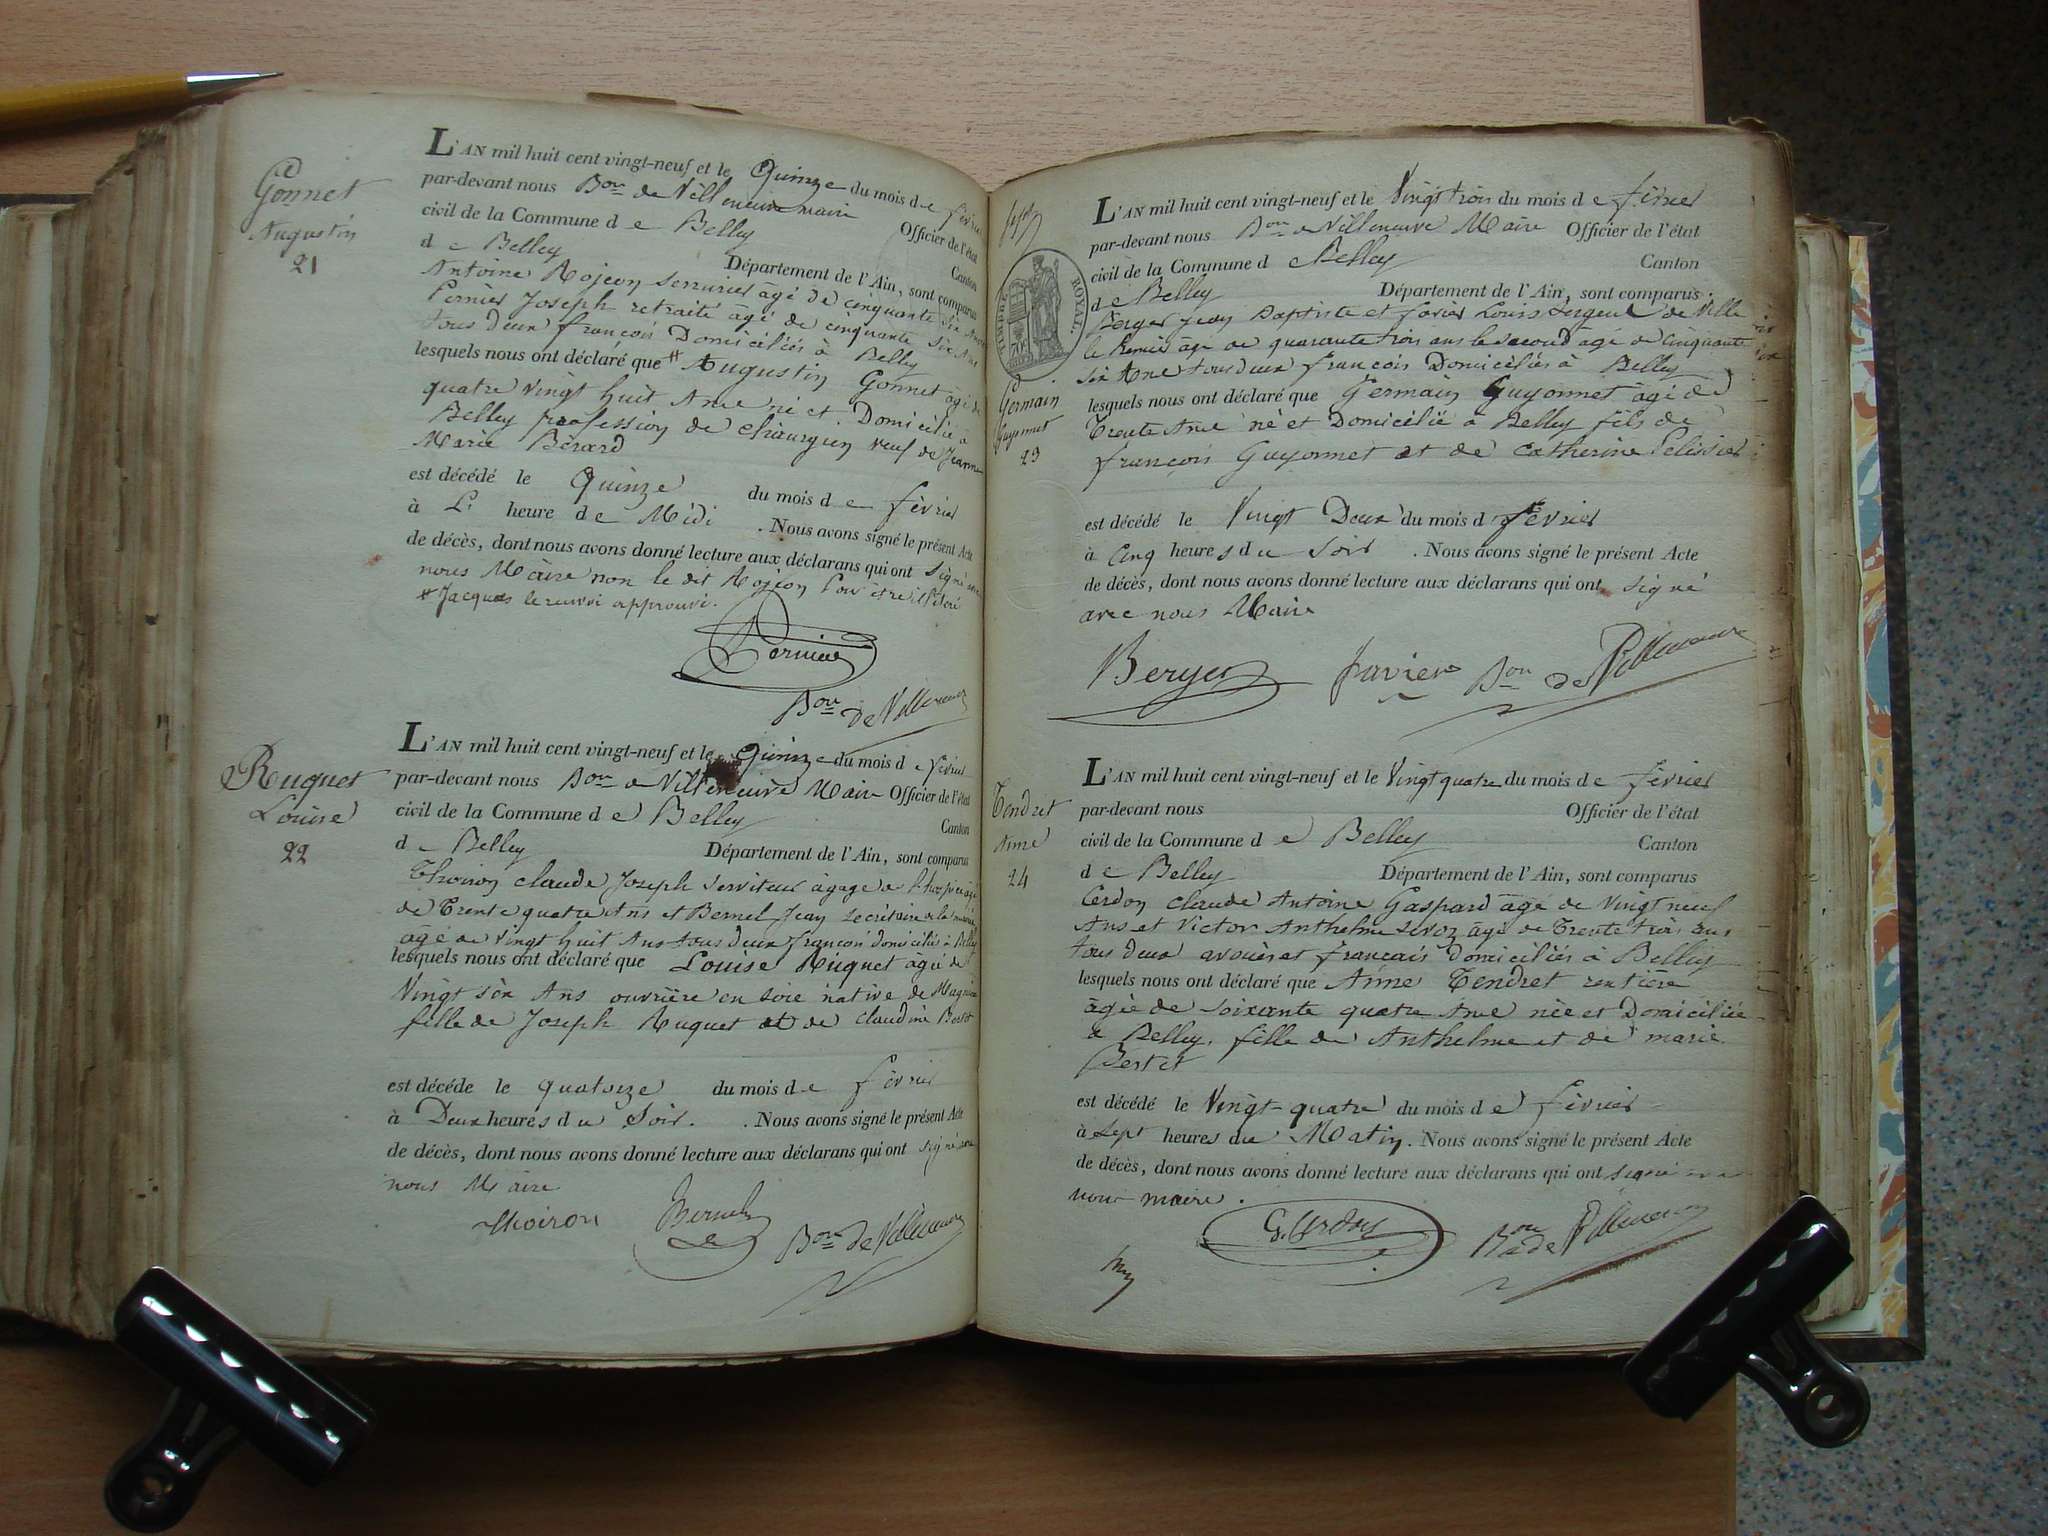 Gonnet
Augustin
21
L'AN mil huit cent vingt-neuf et le Quinze du mois de février
par-devant nous Bon de Villeneuve maire Officier de l'état
civil de la Commune de Belley Canton
de Belley Département de l'Ain, sont comparus
Antoine Rojeon serrurier âgé de cinquante six Ans
Pernier Joseph retraité agé de cinquante six Ans
tous deux françois Domiciliés à Belley
lesquels nous ont déclaré que # Augustin Gonnet âgé de
quatre vingt huit Ans né et Domicilié à
Belley profession de chirurgien veuf de Jeanne
Marie Bérard
est décédé le Quinze du mois de février
à L' heure de Midi . Nous avons signé le présent Acte
de décès, dont nous avons donné lecture aux déclarans qui ont signé avec
nous Maire non le dit Rojeon Pour être illiteré
# Jacques le renvoi approuvé.
Pernier
Bon De Villeneuve
Ruquet
Louise
22
L'AN mil huit cent vingt-neuf et le Quinze du mois de février
par-devant nous Bon de Villeneuve Maire Officier de l'état
civil de la Commune de Belley Canton
de Belley Département de l'Ain, sont comparus
Thoiron claude Joseph serviteur à gage à l'hospice âgé
de Trente quatre Ans et Bernel Jean secrétaire de la mairie
âgé de vingt huit Ans tous deux françois domiciliés à Belley
lesquels nous ont déclaré que Louise Ruquet âgée de
Vingt six Ans ouvrière en soie native de
fille de Joseph Ruquet et de Claudine
est décédé le quatorze du mois de février
à Deux heures du Soir. . Nous avons signé le présent Acte
de décès, dont nous avons donné lecture aux déclarans qui ont signé avec
nous Maire
Thoiron Bernel Bon De Villeneuve
TIMBRE ROYAL.
70c
Germain
Guyonnet
23
L'AN mil huit cent vingt-neuf et le Vingt trois du mois de février
par-devant nous Bon de Villeneuve Maire Officier de l'état
civil de la Commune de Belley Canton
de Belley Département de l'Ain, sont comparus
Berger Jean Baptiste et favier Louis Sergent de Ville
le Premier âgé de quarante trois ans le second âgé de cinquante
six Ans tous deux françois Domiciliés à Belley
lesquels nous ont déclaré que Germain Guyonnet âgé de
Trente Ans né et Domicilié à Belley fils de
françois Guyonnet et de Catherine Pelissier
est décédé le Vingt Deux du mois de février
à Cinq heures du Soir . Nous avons signé le présent Acte
de décès, dont nous avons donné lecture aux déclarans qui ont signé
avec nous Maire
Berger favier Bon de Villeneuve
Tendret
Anne
24
L'AN mil huit cent vingt-neuf et le Vingt quatre du mois de février
par-devant nous Officier de l'état
civil de la Commune de Belley Canton
de Belley Département de l'Ain, sont comparus
Cerdon claude Antoine Gaspard âgé de Vingt neuf
Ans et Victor Anthelme Sivoz agé de Trente trois ans
tous deux avoués et francais domiciliés à Belley
lesquels nous ont déclaré que Anne Tendret rentière
âgée de soixante quatre Ans née et Domiciliée
à Belley, fille de Anthelme et de marie
Bertet
est décédé le Vingt-quatre du mois de février
à Sept heures du Matin. Nous avons signé le présent Acte
de décès, dont nous avons donné lecture aux déclarans qui ont signé avec
nous maire.
G. Cerdon Bon de Villeneuve